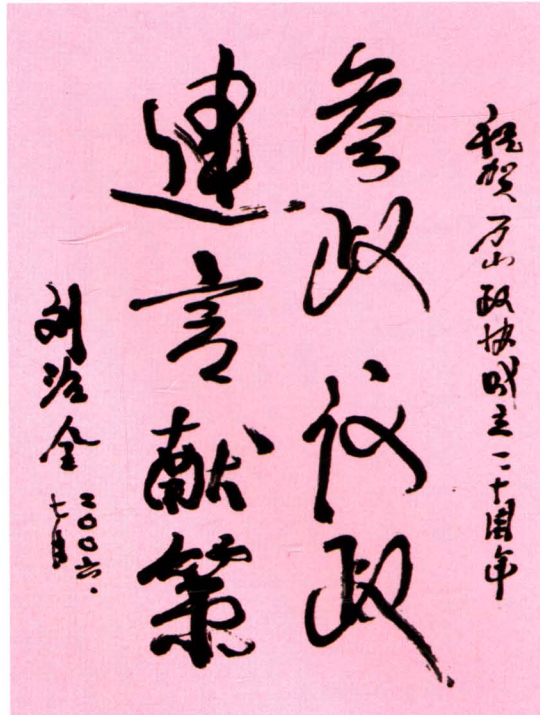 祝贺万山政协成立二十周年
参政议政
建言献策
刘治全
二〇〇六.
七月